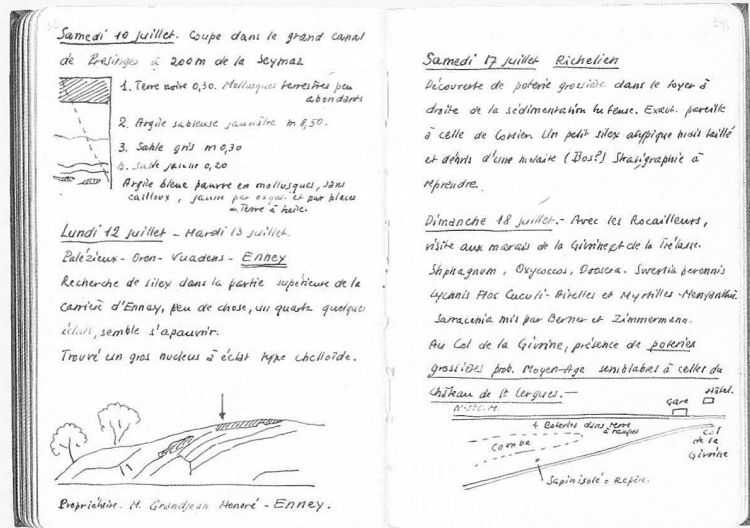 Samedi 10 juillet. Coupe dans le grand canal
de Presinges à 200m de la Seymaz
1. Terre noire 0,30. Mollusques terrestres peu
abondants
2. Argile sableuse jaunâtre m 0,50.
3. Sable gris m 0,30
4. Sable jaune 0,20
Argile bleue pauvre en mollusques, sans
cailloux, jaune par oxyd. et par places
= Terre à tuile.
Lundi 12 juillet - Mardi 13 juillet.
Palézieux - Oron - Vuadens - Enney
Recherche de silex dans la partie supérieure de la
carrière d'Enney, peu de chose, un quartz quelques
éclats, semble s'apauvrir.
Trouvé un gros nucleus à éclat type chelloïde.
Propriétaire. M. Grandjean Honoré - Enney.
Samedi 17 juillet Richelien
Découverte de poterie grossière dans le foyer à
droite de la sédimentation tufeuse. Exact. pareille
à celle de Corsier Un petit silex atypique mais taillé
et débris d'une molaire (Bos?) Stratigraphie à
reprendre.
Dimanche 18 juillet.- Avec les Rocailleurs,
visite aux marais de la Givrine et de la Trélasse.
Shphagnum, Oxycoccos, Drosera. Swertia perennis
Lychnis Flos Cuculi - Airelles et Myrtilles - Menyanthe
Sarracenia mis par Berner et Zimmermann.
Au Col de la Givrine, présence de poteries
grossières prob. Moyen-Age semblables à celles du
Château de St Cergues.-
Hôtel.
Gare
N-St-C-M.
4 Poteries dans terre
à taupes
Combe
Col
de la
Givrine
Sapin isolé = Repère.